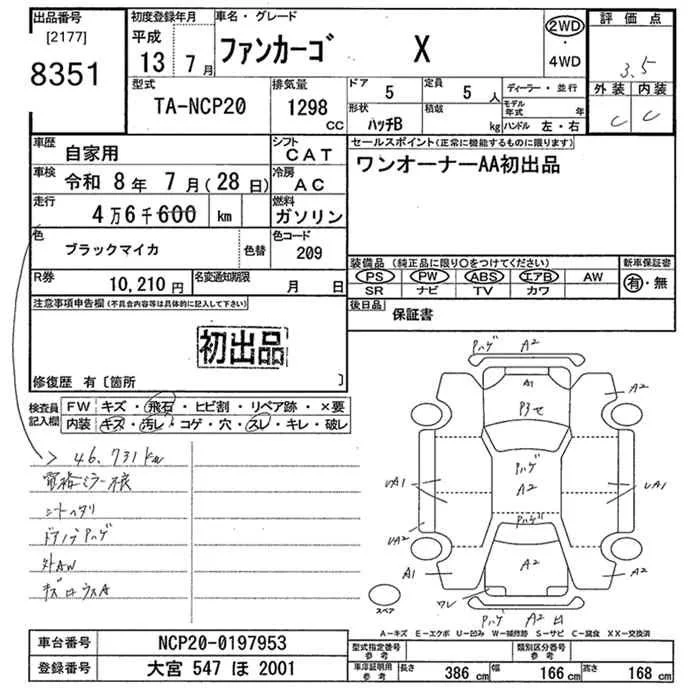 出品番号
[2177]
8351
初度登録年月
平成
13 7 月
車名・グレード
ファンカーゴ X
2WD
・
4WD
評価点
3.5
外装 内装
C C
型式
TA-NCP20
排気量
1298
CC
ドア
5
定員
5 人
形状
ハッチB
積載
kg
ディーラー・並行
モデル年式 年
ハンドル 左・右
車歴
自家用
シフト
CAT
車検
令和 8 年 7 月(28 日)
冷房
AC
走行
4 万 6 千 600 km
燃料
ガソリン
色
ブラックマイカ
色替
色コード
209
R券
10,210 円
名変通知期限
月 日
セールスポイント(正常に機能するものに限ります)
ワンオーナーAA初出品
装備品(純正品に限り○をつけてください)
PS PW ABS エアB AW
SR ナビ TV カワ
新車保証書
有・無
後日品
保証書
注意事項申告欄(不具合内容等は具体的に記入して下さい)
初出品
修復歴 有〔箇所 〕
検査員記入欄
FW キズ・飛石・ヒビ割・リペア跡・×要
内装 キズ・汚レ・コゲ・穴・スレ・キレ・破レ
46,731km
シートヘタリ
ドアノブPハゲ
外AW
Pハゲ A2
A1
A2
P3セ
Pハゲ
A2
UA1
UA1
UA2
Pハゲ
A2
A1
A2
ワレ
Pハゲ A2
スペア
A-キズ E-エクボ U-凹み W-補修跡 S-サビ C-腐食 XX-交換済
車台番号
NCP20-0197953
登録番号
大宮 547 ほ 2001
型式指定番号
参考
類別区分番号
参考
車庫証明用
参考
長さ 386 cm
幅 166 cm
高さ 168 cm